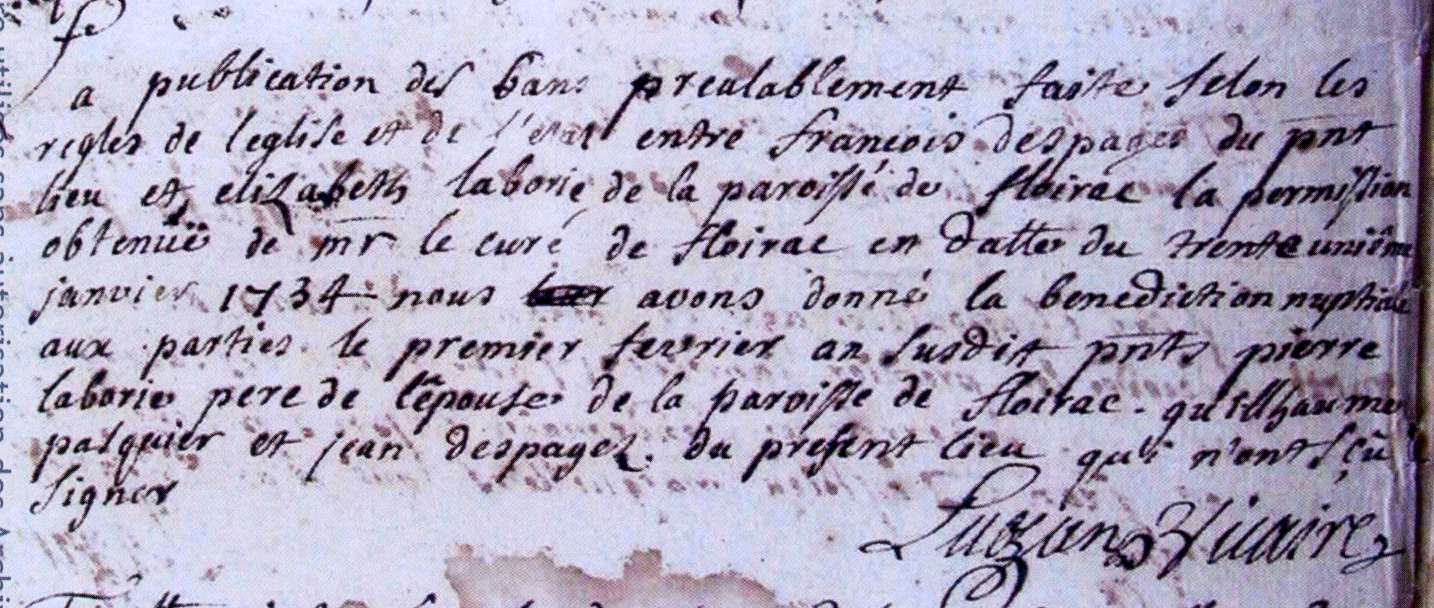 a publication des bans prealablement faitte selon les
regles de leglise et de l'etat entre francois despages du pnt
lieu et elizabeth laborie de la paroisse de floirac la permission
obtenuë de mr le curé de floirac en datte du trente unième
janvier 1734 nous avons donné la benediction nuptiale
aux parties le premier fevrier an susdit pnts pierre
laborie pere de l'épouse de la paroisse de floirac. guilhaume
pasquier et jean despagez. du present lieu qui n'ont sçû
signer
vicaire